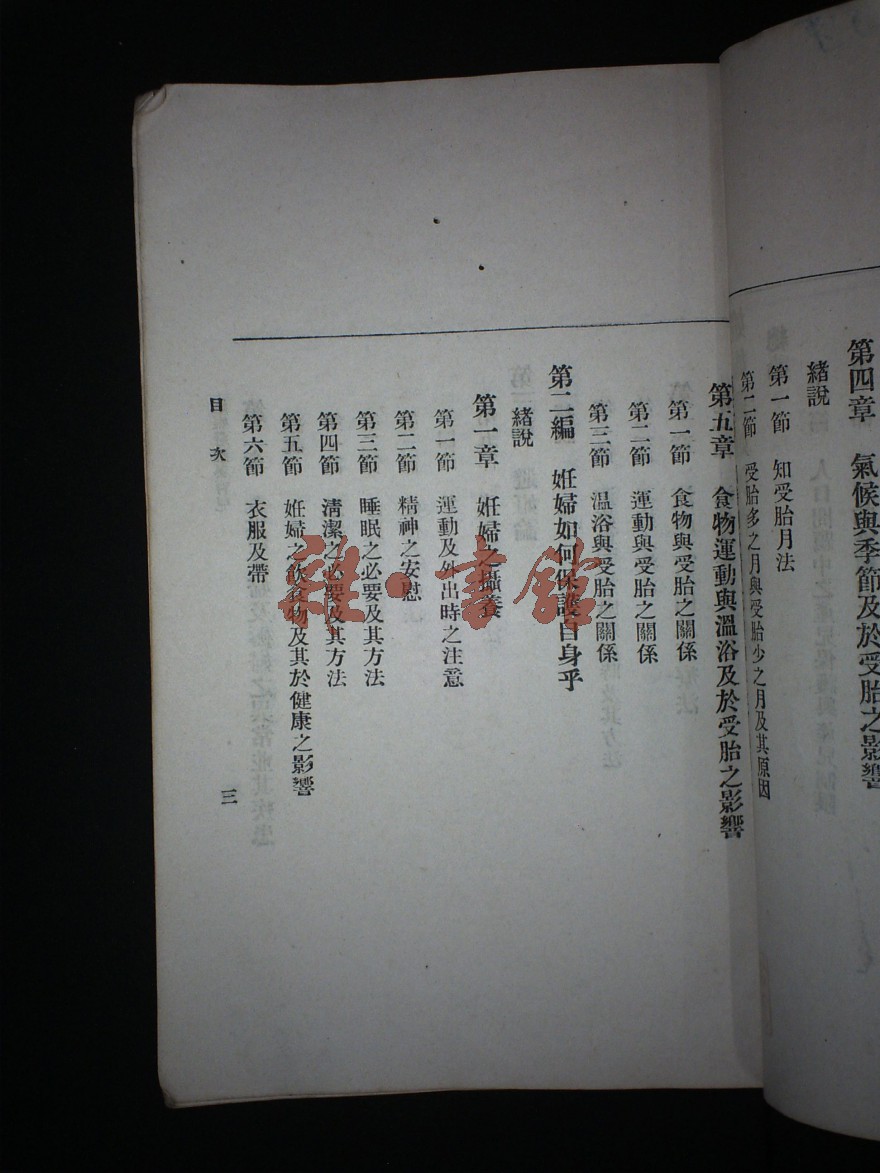 第四章 氣候與季節及於受胎之影響
緒說
第一節 知受胎月法
第二節 受胎多之月與受胎少之月及其原因
第五章 食物運動與溫浴及於受胎之影響
第一節 食物與受胎之關係
第二節 運動與受胎之關係
第三節 温浴與受胎之關係
第二編 妊婦如何保護自身乎
緒說
第一章 妊婦之攝養
第一節 運動及外出時之注意
第二節 精神之安慰
第三節 睡眠之必要及其方法
第四節 清潔之必要及其方法
第五節 妊婦之飲食物及其於健康之影響
第六節 衣服及帶
目次
三
雜·書館